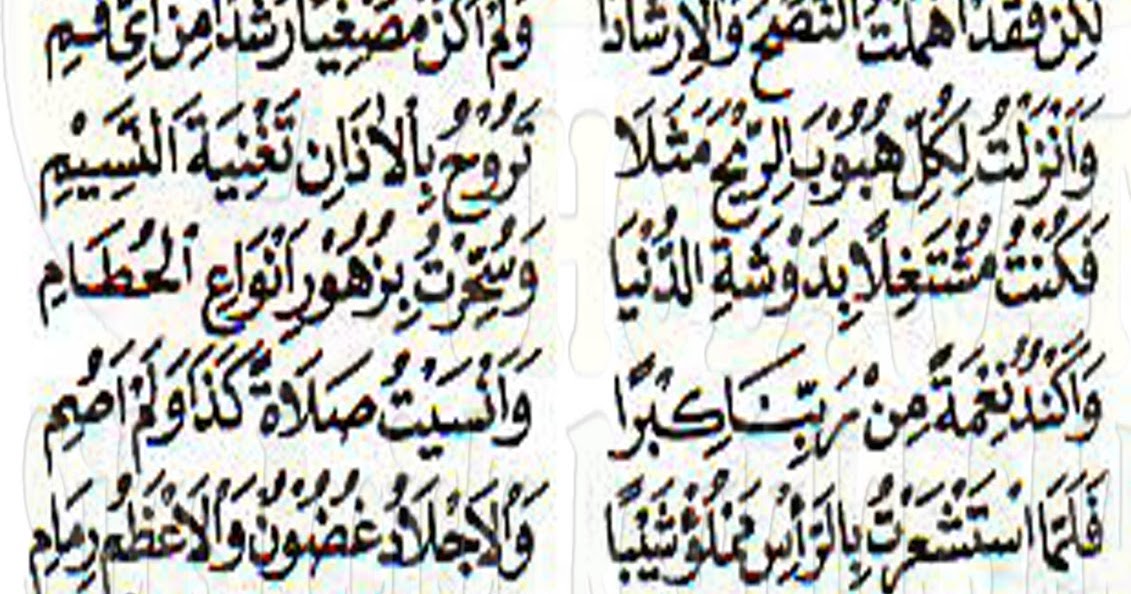 لٰكِنْ فَقَدْ اَهْمَلْتُ النُّصْحَ وَالْاِرْشَادَا وَلَمْ اَكُنْ مُصْغِيًا رَشَدًا مِنْ اَيِّ فَمِ
وَاَنْزَلْتُ لِكُلِّ هُبُوْبَ الرِّيْحِ مَثَلًا تَرُوْحُ بِالْاٰذَانِ تَغْنِيَةَ النَّسِيْمِ
فَكُنْتُ مُشْتَغِلًا بِدَوْشَةِ الدُّنْيَا وَسُحِرْتُ بِزُهُوْرِ اَنْوَاعِ الْحُطَامِ
وَاَكْنُدُ نِعْمَةً مِنْ رَبِّنَا كِبْرًا وَاَنْسَيْتُ صَلَاةً كَذَا وَلَمْ اَصُمِ
فَلَمَّا اسْتَشْعَرْتُ بِالرَّأْسِ مَمْلُوْ شَيْبًا وَالْاَجْلَادُ غُضُوْنٌ وَالْاَعْظُمُ رِمَامِ